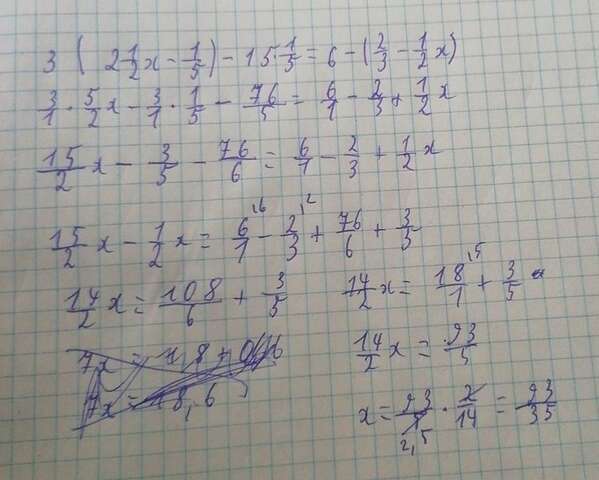 3 ( 2 1/2 x - 1/5 ) - 15 · 1/5 = 6 - ( 2/3 - 1/2 x )
3/1 · 5/2 x - 3/1 · 1/5 - 76/5 = 6/1 - 2/3 + 1/2 x
15/2 x - 3/5 - 76/6 = 6/1 - 2/3 + 1/2 x
15/2 x - 1/2 x = 6/1 - 2/3 + 76/6 + 3/5
14/2 x = 108/6 + 3/5
14/2 x = 18/1 + 3/5
14/2 x = 93/5
x = 93/5 · 2/14 = 93/35